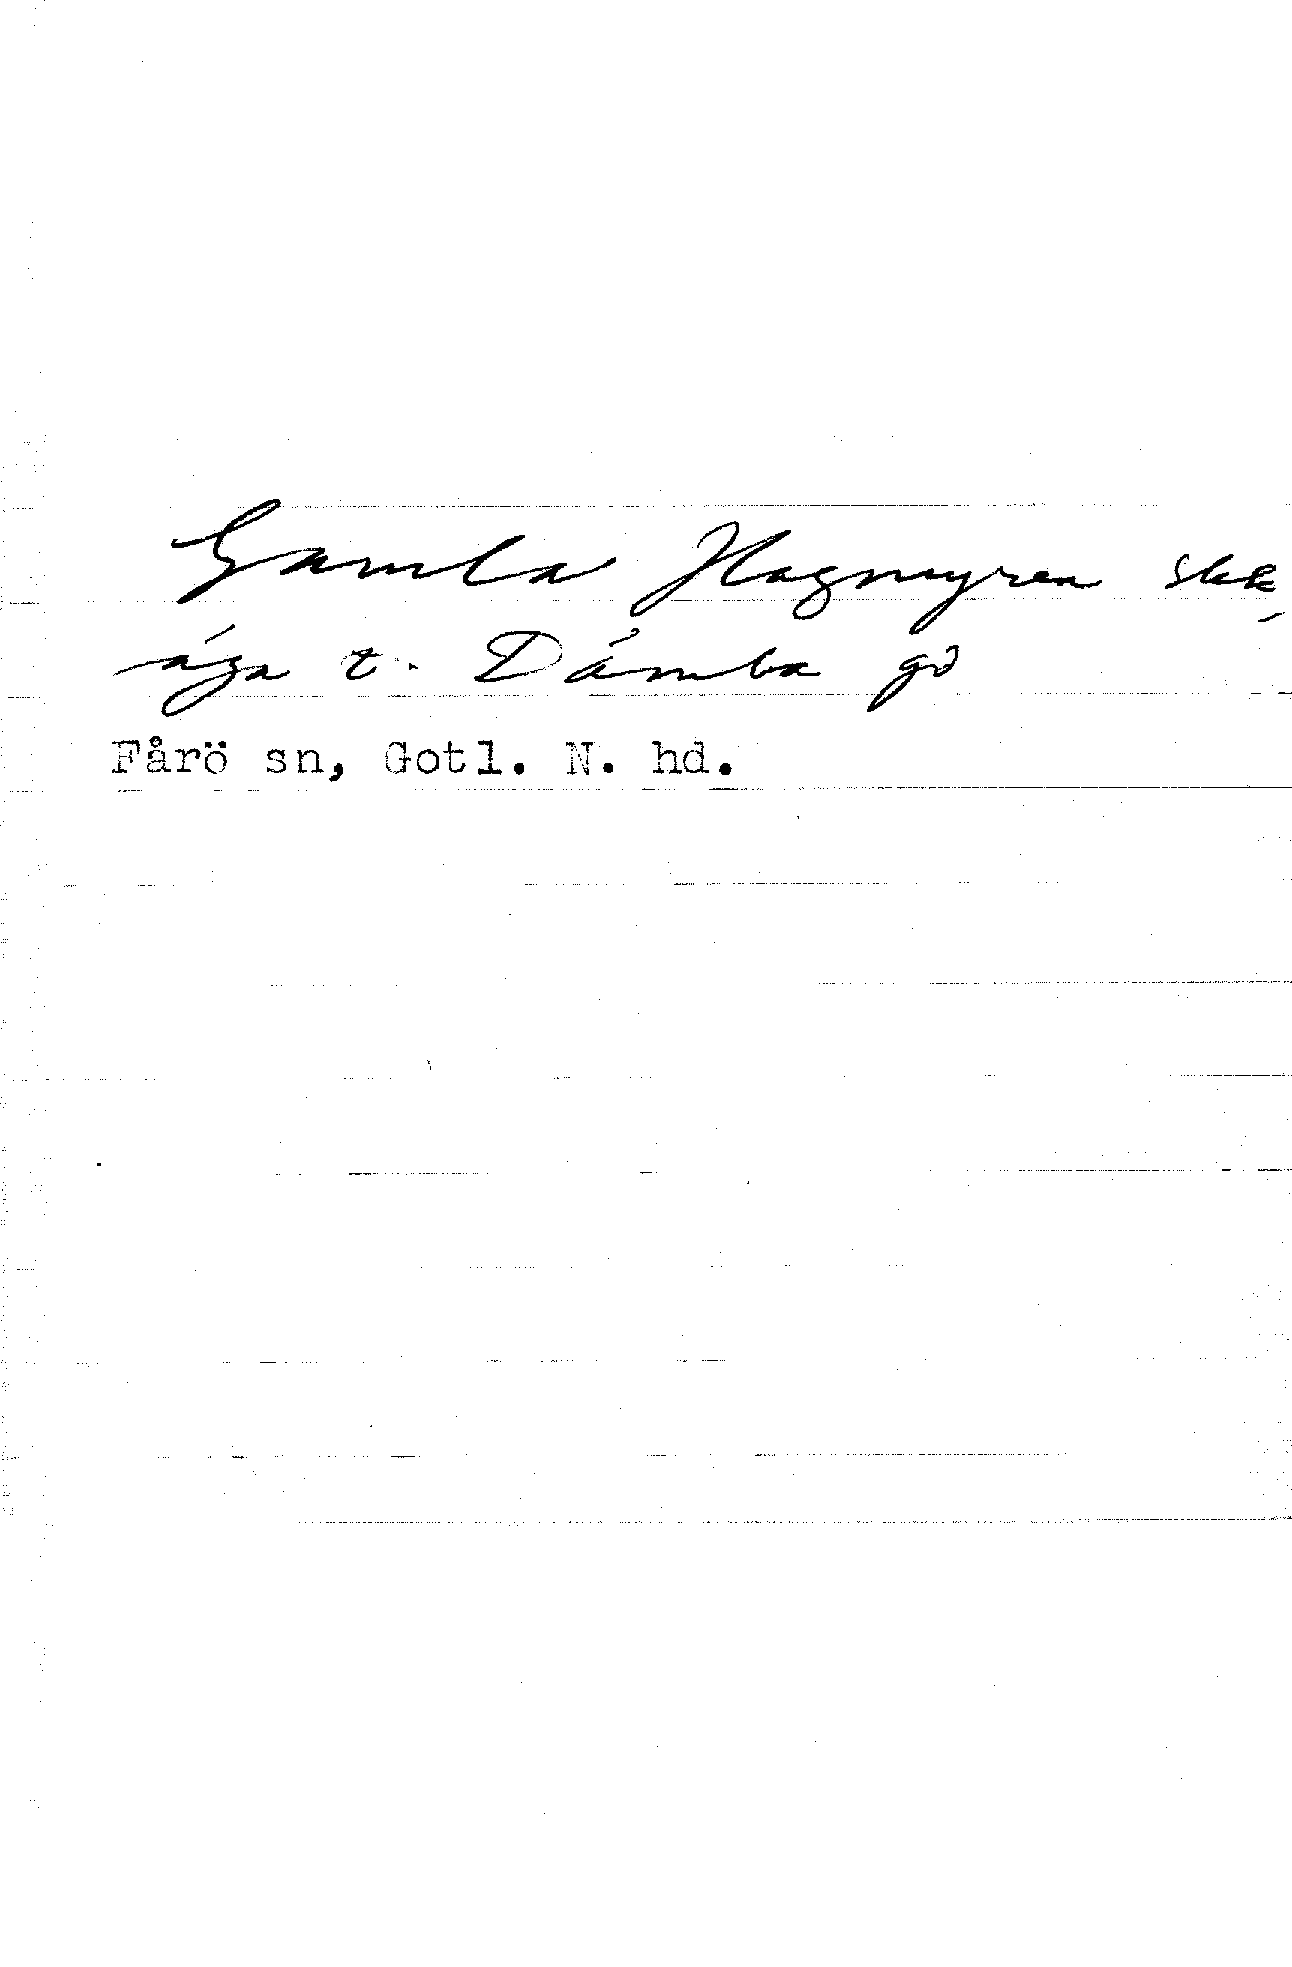 Gamla Hagmyren skk,
äga t. Dämba gd
Fårö sn, Gotl. N. hd.